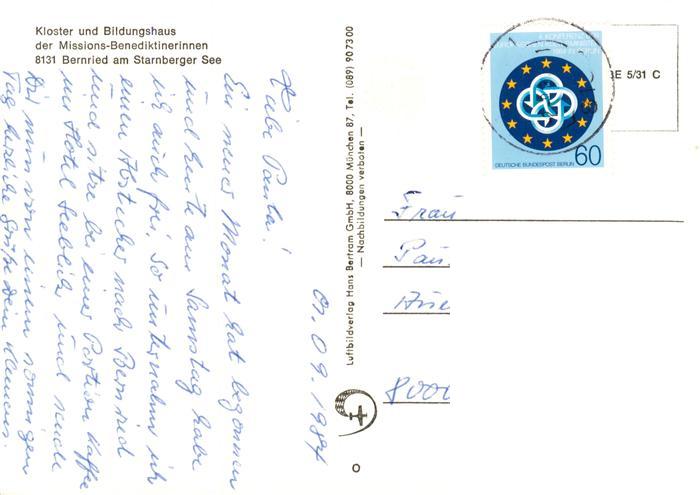 Kloster und Bildungshaus
der Missions-Benediktinerinnen
8131 Bernried am Starnberger See
01.09.1984
Liebe Paula!
Ein neuer Monat hat begonnen
und heute am Samstag habe
ich auch frei. So unternahm ich
einen Abstecher nach Bernried
und sitze bei einer Portion Kaffee
im Hotel Seeblick und sende
Dir nun von einem sonnigen
Tag herzliche Grüße Dein Klemens.
Luftbildverlag Hans Bertram GmbH, 8000 München 87, Tel. (089) 907300
— Nachbildungen verboten —
EUROPÄISCHEN
DEUTSCHE BUNDESPOST BERLIN
60
BE 5/31 C
Frau
Pau
8000